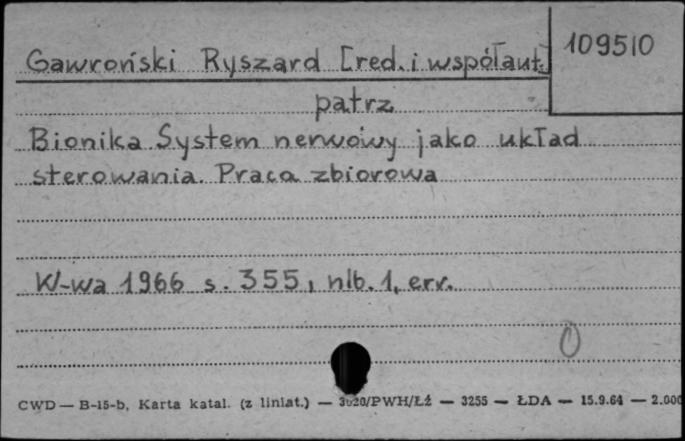 Gawroński Ryszard [red. i współaut.]
109510
patrz
Bionika System nerwowy jako układ
sterowania. Praca zbiorowa
W-wa 1966 s. 355, nlb. 1, err.
0
CWD — B-15-b, Karta katal. (z liniat.) — 3020/PWH/Łź — 3255 — ŁDA — 15.9.64 — 2.000